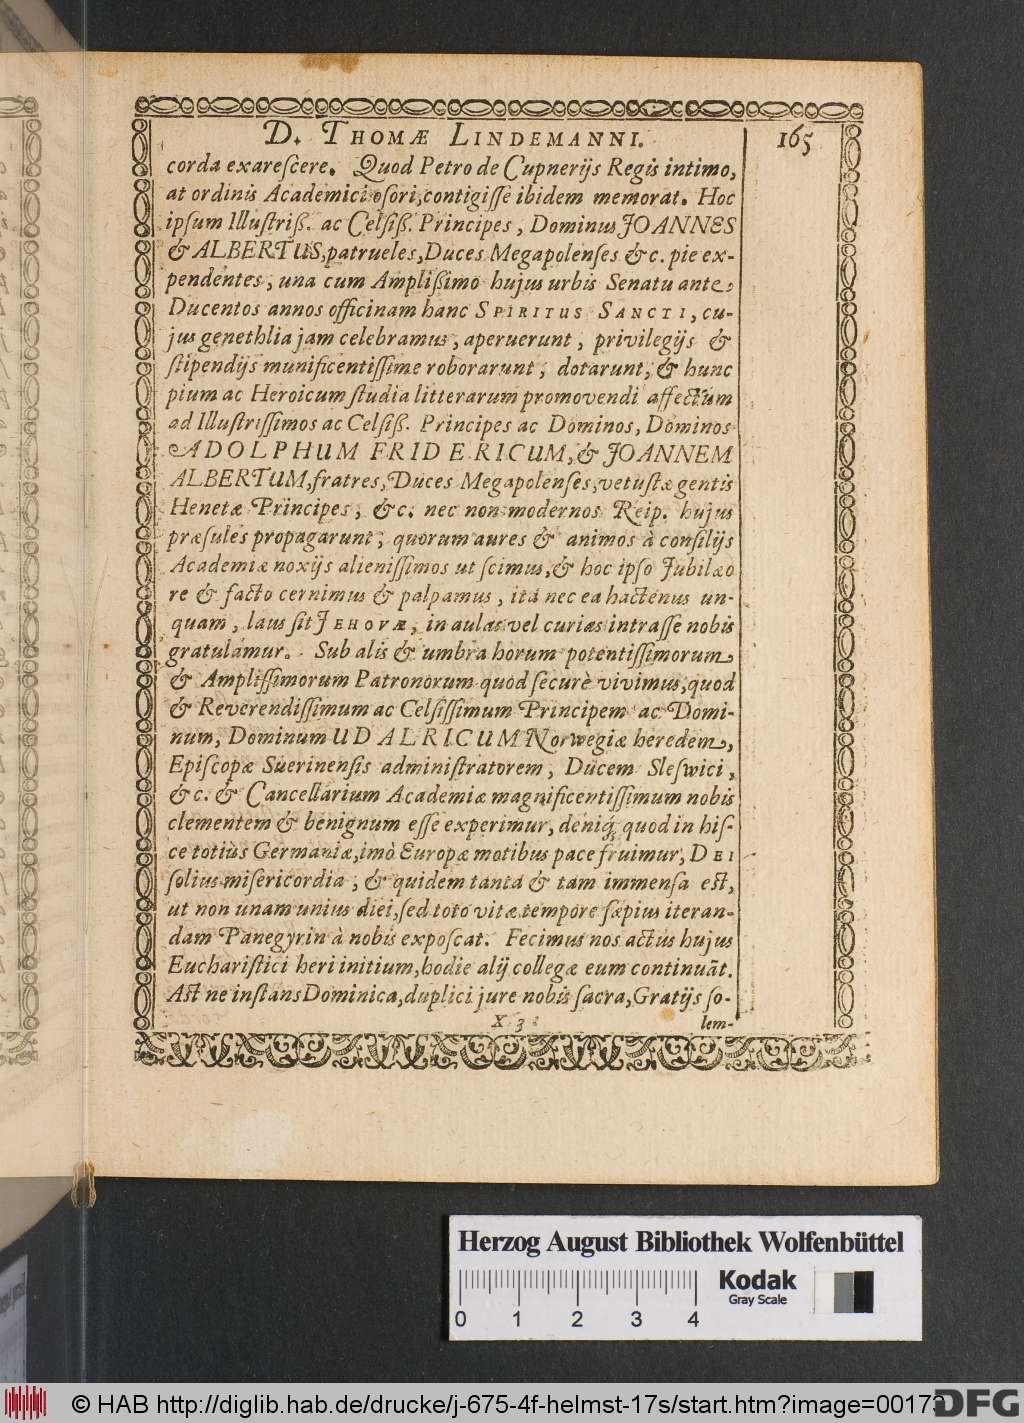 D. THOMÆ LINDEMANNI. 165
corda exarescere. Quod Petro de Cupnerijs Regis intimo,
at ordinis Academici osori, contigisse ibidem memorat. Hoc
ipsum Illustriß. ac Celsiß. Principes, Dominus JOANNES
& ALBERTUS, patrueles, Duces Megapolenses &c. pie ex-
pendentes, una cum Amplißimo hujus urbis Senatu ante
Ducentos annos officinam hanc SPIRITUS SANCTI, cu-
jus genethlia jam celebramus, aperuerunt, privilegijs &
stipendijs munificentissime roborarunt, dotarunt, & hunc
pium ac Heroicum studia litterarum promovendi affectum
ad Illustrissimos ac Celsiß. Principes ac Dominos, Dominos
ADOLPHUM FRIDERICUM, & JOANNEM
ALBERTUM, fratres, Duces Megapolenses, vetustæ gentis
Henetæ Principes, &c. nec non modernos Reip. hujus
præsules propagarunt, quorum aures & animos à consilijs
Academiæ noxijs alienissimos ut scimus, & hoc ipso Jubilæo
re & facto cernimus & palpamus, ita nec ea hactenus un-
quam, laus sit JEHOVÆ, in aulas vel curias intrasse nobis
gratulamur. Sub alis & umbra horum potentissimorum
& Amplissimorum Patronorum quod securè vivimus, quod
& Reverendissimum ac Celsissimum Principem ac Domi-
num, Dominum UDALRICUM Norwegiæ heredem,
Episcopæ Suerinensis administratorem, Ducem Sleswici,
&c. & Cancellarium Academiæ magnificentissimum nobis
clementem & benignum esse experimur, deniq́; quod in his-
ce totiùs Germaniæ, imò Europæ motibus pace fruimur, DEI
solius misericordia, & quidem tanta & tam immensa est,
ut non unam unius diei, sed toto vitæ tempore sæpius iteran-
dam Panegyrin à nobis exposcat. Fecimus nos actus hujus
Eucharistici heri initium, hodie alij collegæ eum continuãt.
Ast ne instans Dominica, duplici jure nobis sacra, Gratijs so-
X 3 lem-
Herzog August Bibliothek Wolfenbüttel
Kodak
Gray Scale
0 1 2 3 4
© HAB http://diglib.hab.de/drucke/j-675-4f-helmst-17s/start.htm?image=00173
DFG